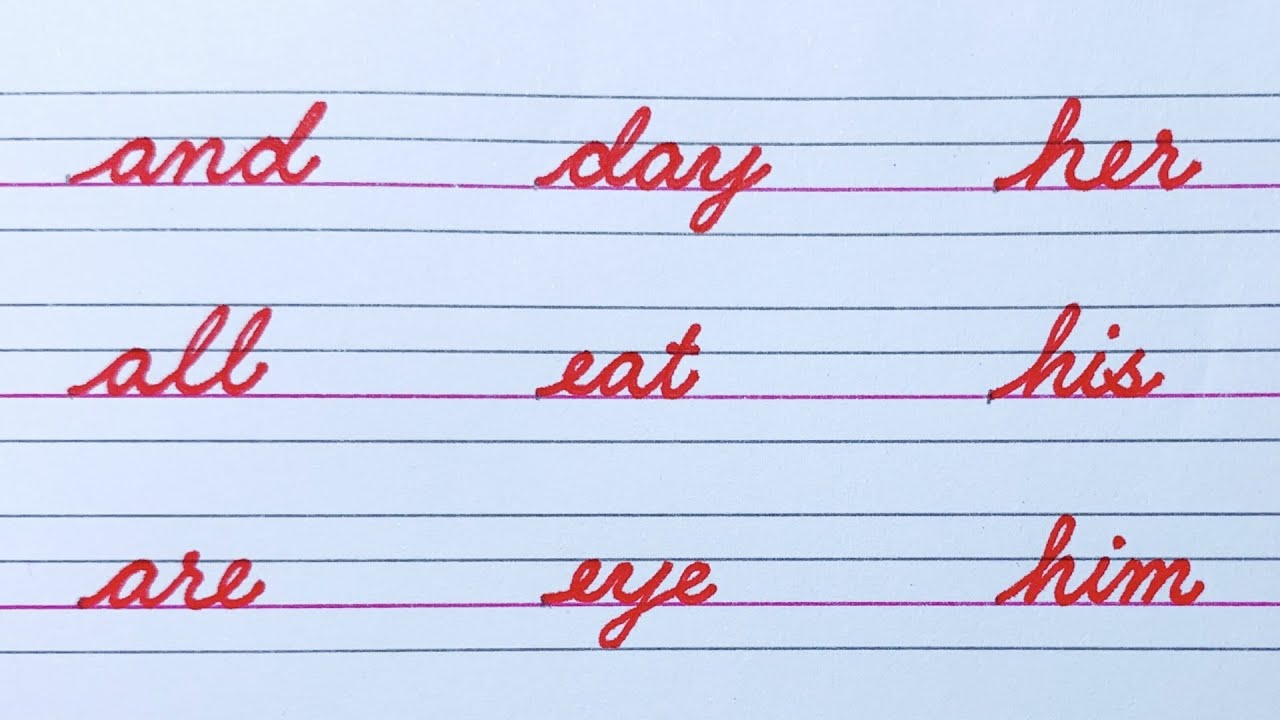 and day her
all eat his
are eye him